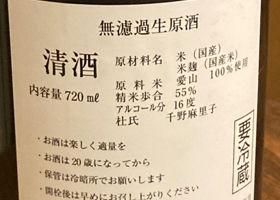 無濾過生原酒
清酒
内容量720㎖
原材料名 米(国産)
米麹(国産米)
原料米 愛山 100%使用
精米歩合 55%
アルコール分 16度
杜氏 千野麻里子
・お酒は楽しく適量を
・お酒は20歳になってから
・保管は冷暗所でお願いします
・開栓後は早めにお召し上がりください
要冷蔵